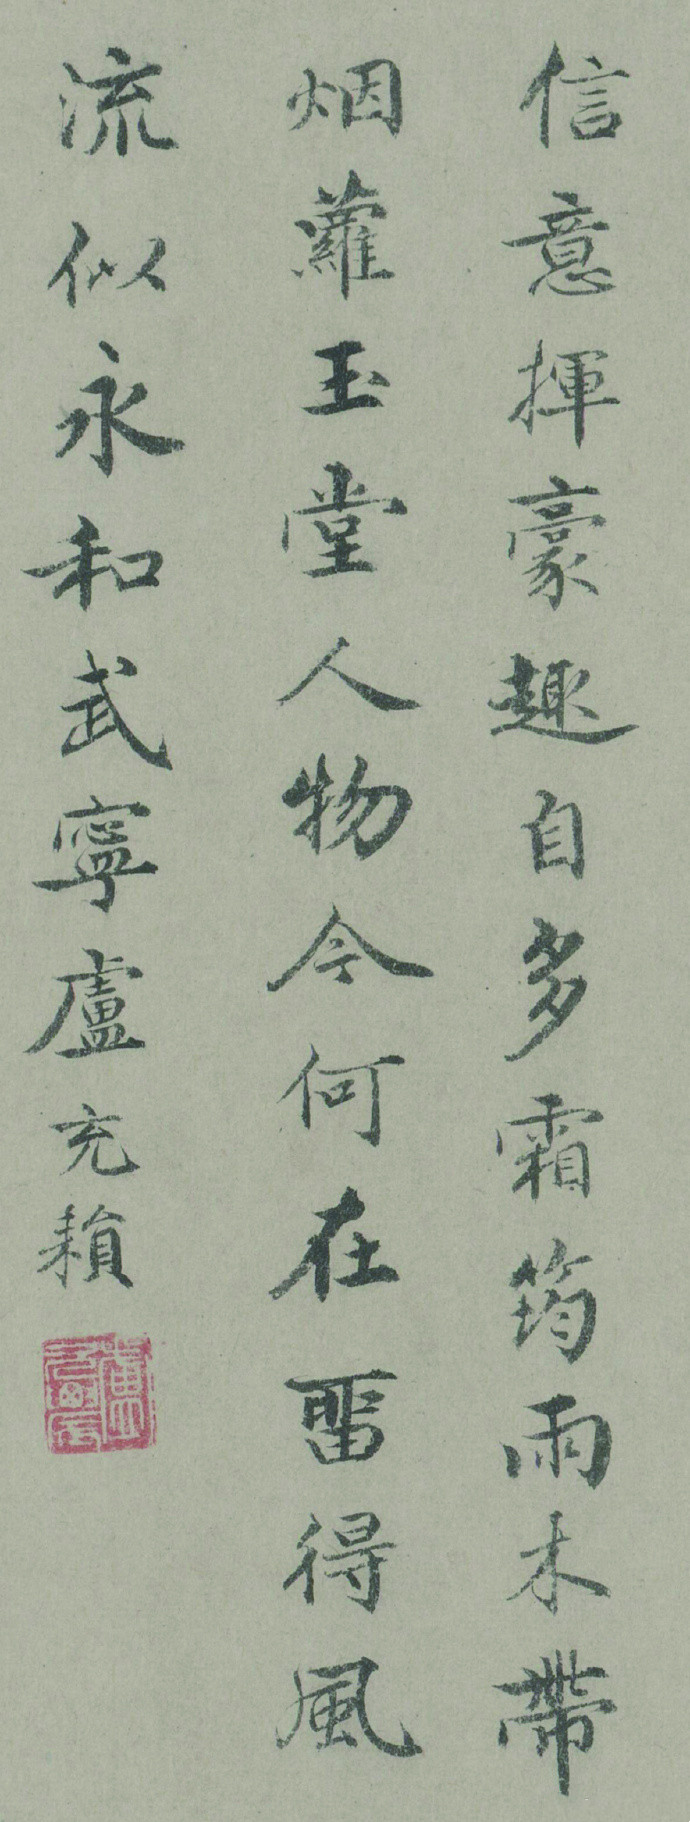 信意揮豪趣自多霜筠雨木帶
烟蘿玉堂人物今何在畱得風
流似永和武寧盧充頛